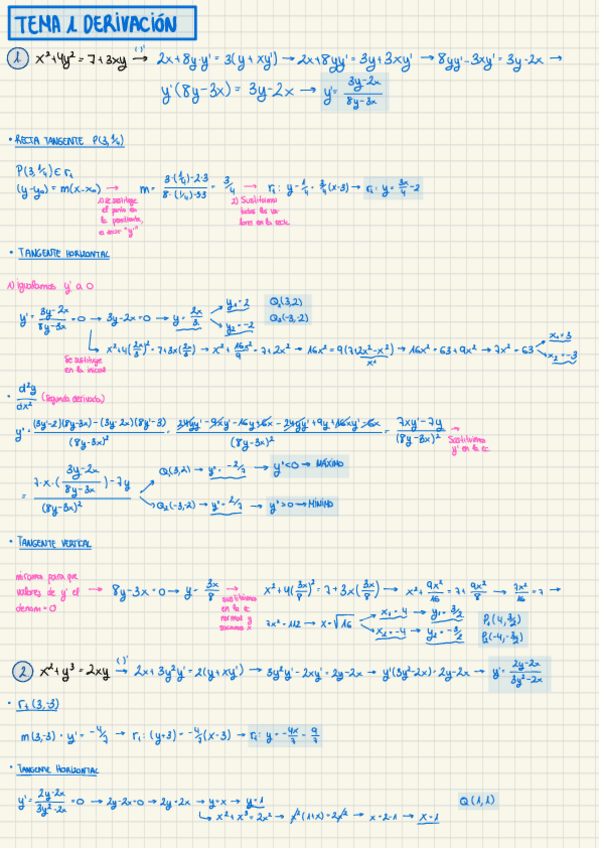 TEMA 1 DERIVACIÓN
1 x²+4y² = 7+3xy →( )' 2x+8y·y' = 3(y+xy') → 2x+8yy' = 3y+3xy' → 8yy'-3xy' = 3y-2x →
y'(8y-3x) = 3y-2x → y' = (3y-2x)/(8y-3x)
• RECTA TANGENTE P(3,1/4)
P(3,1/4) ∈ r₁
(y-y₀) = m(x-x₀) → m = (3·(1/4)-2·3)/(8·(1/4)-3·3) = 3/4 → r₁: y-1/4 = 3/4(x-3) → r₁: y = 3x/4 -2
1) se sustituye el punto en la pendiente, es decir "y'"
2) Sustituimos todos los valores en la recta.
• TANGENTE HORIZONTAL
1) igualamos y' a 0
y' = (3y-2x)/(8y-3x) = 0 → 3y-2x=0 → y = 2x/3 → y₁=2 Q₁(3,2)
y₂=-2 Q₂(-3,-2)
→ x²+4(2x/3)² = 7+3x(2x/3) → x²+16x²/9 = 7+2x² → 16x² = 9(7+2x²-x²) → 16x² = 63+9x² → 7x² = 63 → x₁=3 x₂=-3
Se sustituye en la inicial
• d²y/dx² (segunda derivada)
y'' = ((3y'-2)(8y-3x)-(3y-2x)(8y'-3))/(8y-3x)² = (24yy'-9xy'-16y+6x-24yy'+9y+16xy'-6x)/(8y-3x)² = (7xy'-7y)/(8y-3x)² →
Sustituimos y' en la ec.
= (7·x·((3y-2x)/(8y-3x))-7y)/(8y-3x)² → Q₁(3,2) → y'' = -2/7 → y''<0 → MÁXIMO
→ Q₂(-3,-2) → y'' = 2/7 → y''>0 → MÍNIMO
• TANGENTE VERTICAL
miramos para que valores de y' el denom=0 → 8y-3x=0 → y = 3x/8 → x²+4(3x/8)² = 7+3x(3x/8) → x²+9x²/16 = 7+9x²/8 → 7x²/16 = 7 →
sustituimos en la ec normal y sacamos x
7x² = 112 → x=√16 → x₁=4 → y₁=3/2 P₁(4,3/2)
x₂=-4 → y₂=-3/2 P₂(-4,-3/2)
2 x²+y³ = 2xy →( )' 2x+3y²y' = 2(y+xy') → 3y²y'-2xy' = 2y-2x → y'(3y²-2x) = 2y-2x → y' = (2y-2x)/(3y²-2x)
• r₁(3,-3)
m(3,-3) = y' = -4/7 → r₁: (y+3) = -4/7(x-3) → r₁: y = -4x/7 - 9/7
• TANGENTE HORIZONTAL
y' = (2y-2x)/(3y²-2x) = 0 → 2y-2x=0 → 2y=2x → y=x → y=1 Q(1,1)
→ x²+x³ = 2x² → x²(1+x) = 2x² → x = 2-1 → x=1